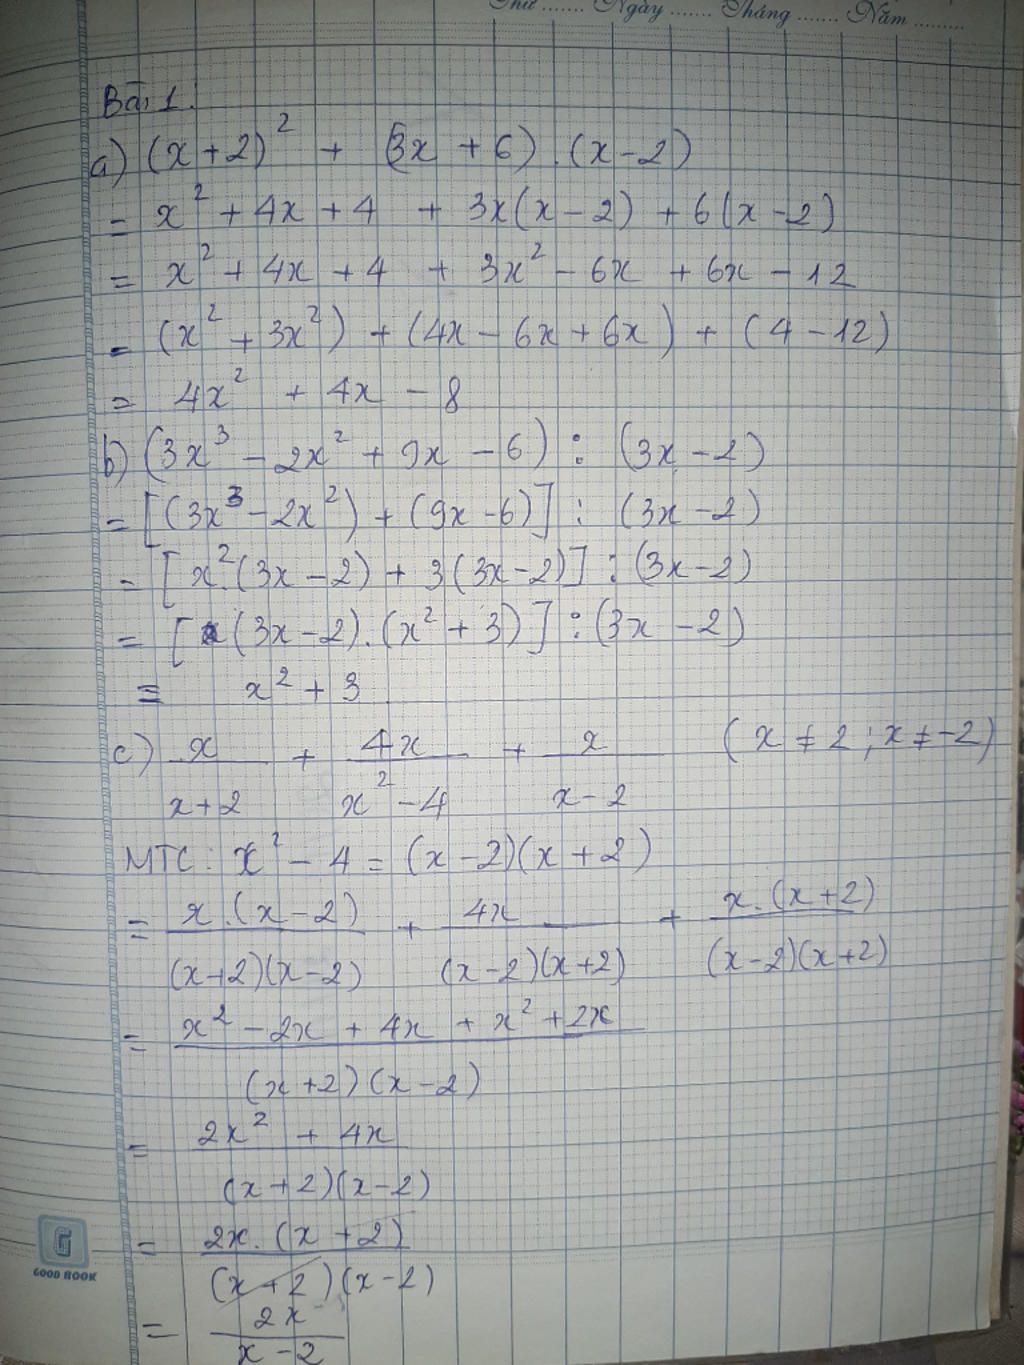 Thứ ....... Ngày ....... Tháng ....... Năm .........
Bài 1:
a) (x + 2)² + (3x + 6) . (x - 2)
= x² + 4x + 4 + 3x(x - 2) + 6(x - 2)
= x² + 4x + 4 + 3x² - 6x + 6x - 12
= (x² + 3x²) + (4x - 6x + 6x) + (4 - 12)
= 4x² + 4x - 8
b) (3x³ - 2x² + 9x - 6) : (3x - 2)
= [(3x³ - 2x²) + (9x - 6)] : (3x - 2)
= [x²(3x - 2) + 3(3x - 2)] : (3x - 2)
= [(3x - 2).(x² + 3)] : (3x - 2)
= x² + 3
c) x + 4x + x (x ≠ 2 ; x ≠ -2)
x + 2 x² - 4 x - 2
MTC: x² - 4 = (x - 2)(x + 2)
= x.(x - 2) + 4x + x.(x + 2)
(x + 2)(x - 2) (x - 2)(x + 2) (x - 2)(x + 2)
= x² - 2x + 4x + x² + 2x
(x + 2)(x - 2)
= 2x² + 4x
(x + 2)(x - 2)
= 2x.(x + 2)
(x + 2)(x - 2)
= 2x
x - 2
G
GOOD BOOK